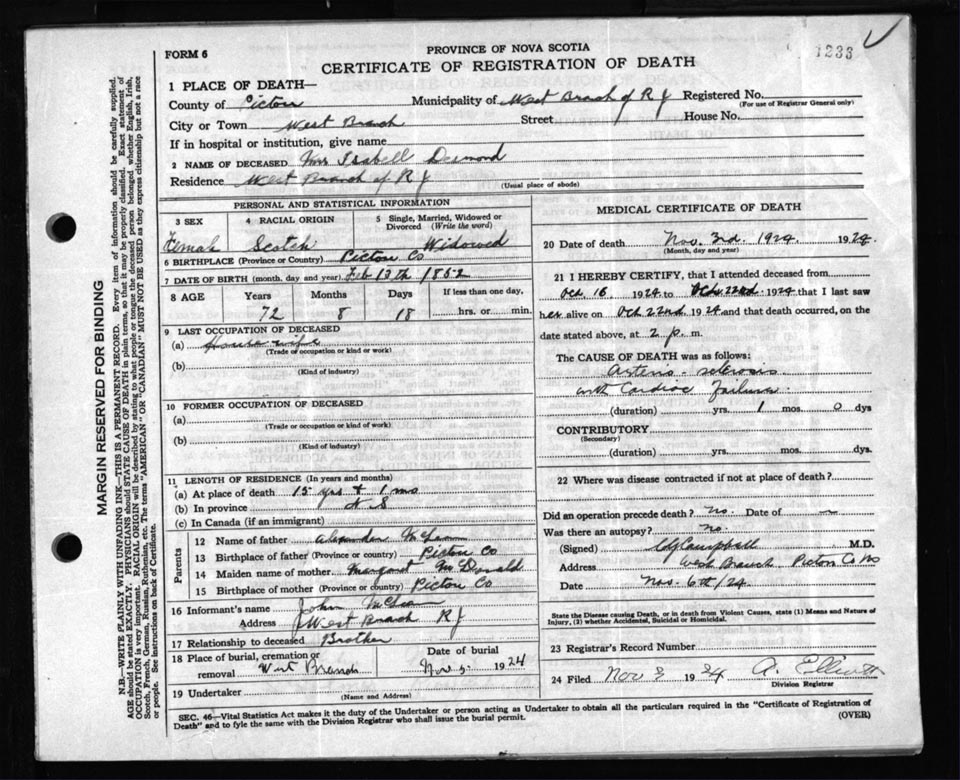 1233
FORM 6
PROVINCE OF NOVA SCOTIA
CERTIFICATE OF REGISTRATION OF DEATH
MARGIN RESERVED FOR BINDING
N.B.—WRITE PLAINLY WITH UNFADING INK—THIS IS A PERMANENT RECORD. Every item of information should be carefully supplied.
AGE should be stated EXACTLY. PHYSICIANS should STATE CAUSE OF DEATH in plain terms, so that it may be properly classified. Exact statement of
OCCUPATION is very important. RACIAL ORIGIN will be described by stating to what people or tongue the deceased person belonged, whether English, Irish,
Scotch, French, German, Russian, Ruthenian, etc. The terms "AMERICAN" OR "CANADIAN" MUST NOT BE USED as they express citizenship but not a race
or people. See instructions on back of Certificate.
1 PLACE OF DEATH—
County of Pictou Municipality of West Branch of R J Registered No.
(For use of Registrar General only)
City or Town West Branch Street House No.
If in hospital or institution, give name
2 NAME OF DECEASED Mrs Isabell Desmond
Residence West Branch of R J
(Usual place of abode)
PERSONAL AND STATISTICAL INFORMATION
3 SEX Female
4 RACIAL ORIGIN Scotch
5 Single, Married, Widowed or Divorced (Write the word) Widowed
6 BIRTHPLACE (Province or Country) Pictou Co
7 DATE OF BIRTH (month, day and year) Feb 13th 1852
8 AGE Years Months Days If less than one day,
72 8 18 hrs. or min.
9 LAST OCCUPATION OF DECEASED
(a) House wife
(Trade or occupation or kind or work)
(b)
(Kind of industry)
10 FORMER OCCUPATION OF DECEASED
(a)
(Trade or occupation or kind or work)
(b)
(Kind of industry)
11 LENGTH OF RESIDENCE (In years and months)
(a) At place of death 15 yrs + 1 mo
(b) In province N S
(c) In Canada (if an immigrant)
Parents
12 Name of father Alexander McLean
13 Birthplace of father (Province or country) Pictou Co
14 Maiden name of mother Margaret McDonald
15 Birthplace of mother (Province or country) Pictou Co
16 Informant's name John McLean
Address West Branch R J
17 Relationship to deceased Brother
18 Place of burial, cremation or removal West Branch
Date of burial
Nov 5 1924
19 Undertaker
(Name and Address)
MEDICAL CERTIFICATE OF DEATH
20 Date of death Nov. 3rd. 1924. 1924.
(Month, day and year)
21 I HEREBY CERTIFY, that I attended deceased from
Oct. 16 1924 to Oct. 22nd 1924 that I last saw
her alive on Oct 22nd 1924 and that death occurred, on the
date stated above, at 2 p. m.
The CAUSE OF DEATH was as follows:
Arterio-sclerosis
with Cardiac Failure.
(duration) yrs. 1 mos. 0 dys
CONTRIBUTORY
(Secondary)
(duration) yrs. mos. dys.
22 Where was disease contracted if not at place of death?
Did an operation precede death? No. Date of
Was there an autopsy? No.
(Signed) Campbell M.D.
Address West Branch Pictou Co NS
Date Nov. 6th/24
State the Disease causing Death, or in death from Violent Causes, state (1) Means and Nature of
Injury, (2) whether Accidental, Suicidal or Homicidal.
23 Registrar's Record Number
24 Filed Nov 3 1924 A. Elliott
Division Registrar
SEC. 46—Vital Statistics Act makes it the duty of the Undertaker or person acting as Undertaker to obtain all the particulars required in the "Certificate of Registration of
Death" and to fyle the same with the Division Registrar who shall issue the burial permit.
(OVER)